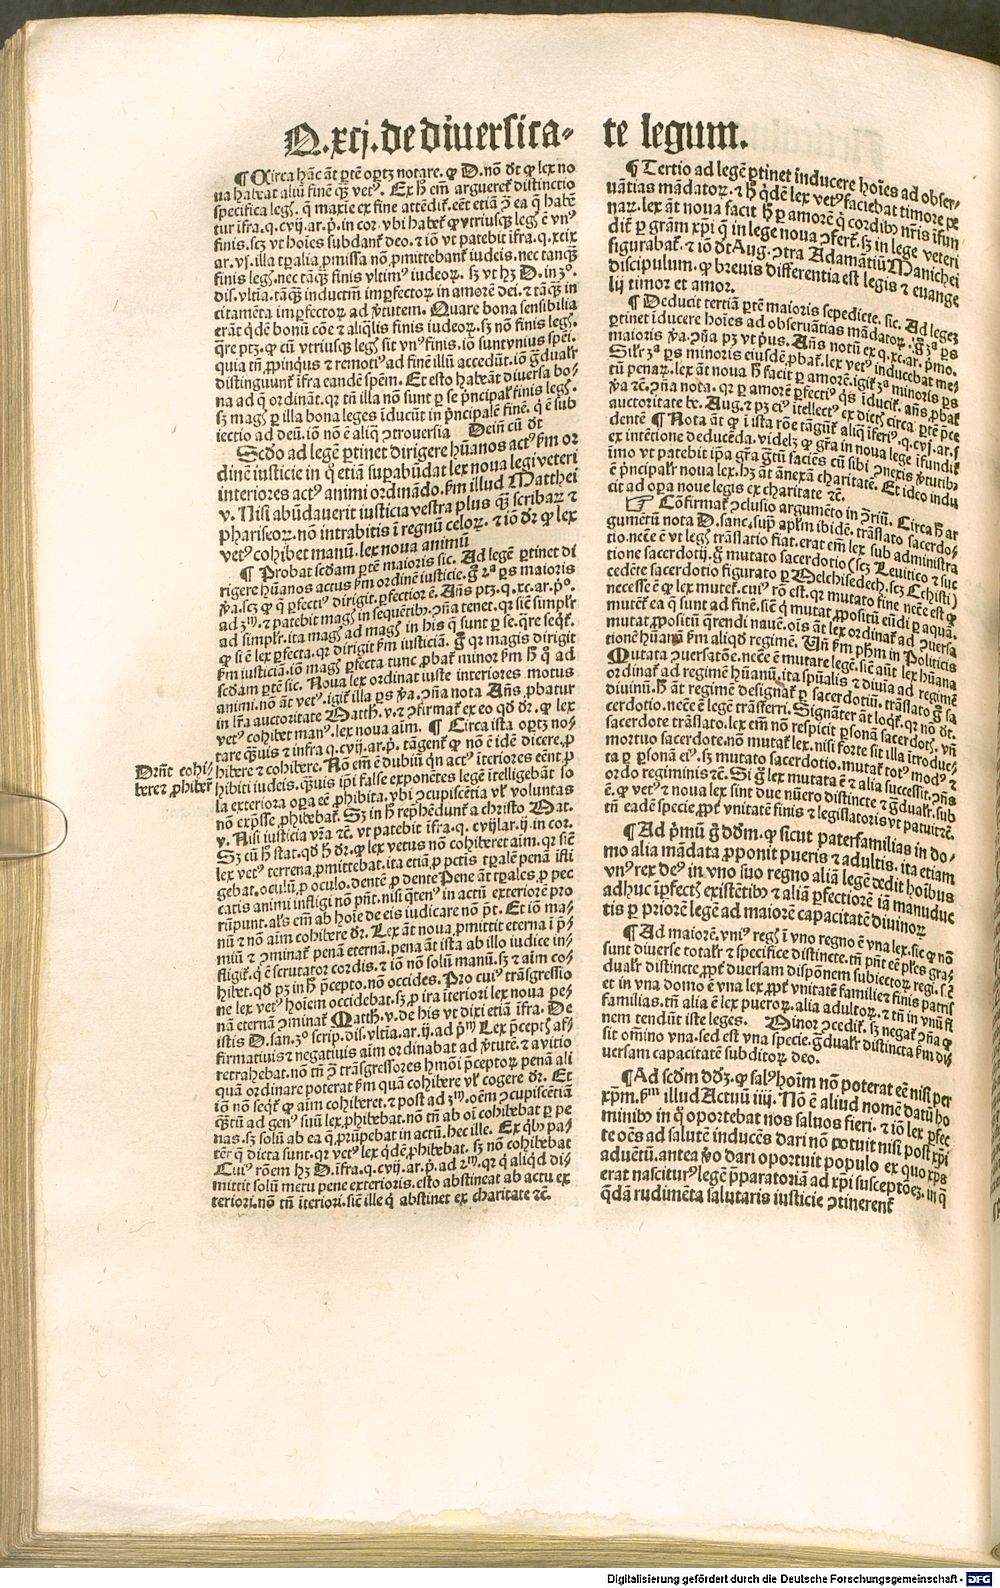 Q.xcj. de diuersita-
te legum.
¶ Circa hāc āt ꝑtē oportꝫ notare. ꝙ D. nō dt̄ ꝙ lex no
ua habeat aliū finē qꝫ vetꝰ. Ex h̄ em̄ argueret̉ distinctio
specifica leg. q̄ maxīe ex fine attēdit̉. eēt etiā ꝯ ea q̄ habē
tur īfra. q. cvij. ar. p̄. in cor. vbi habet̉ ꝙ vtriusqꝫ leḡ ē vnꝰ
finis. scꝫ vt hoīes subdant̉ deo. ⁊ iō vt patebit īfra. q. xcix
ar. vj. illa tꝑalia ꝓmissa nō ꝓmittebant̉ iudeis. nec tanqꝫ
finis leḡ. nec tāqꝫ finis vltimꝰ iudeoꝝ. sꝫ vt hꝫ D. in 3º.
dis. vltīa. tāqꝫ inductīn̄ imꝑfectoꝝ in amorē dei. ⁊ tāqꝫ in
citamēta imꝑfectoꝝ ad v̓tutem. Quare bona sensibilia
erāt q̇dē bonū cōe ⁊ aliq̄lis finis iudeoꝝ. sꝫ nō finis leḡ.
q̄re ptꝫ. ꝙ cū vtriusqꝫ leḡ sit vnꝰ finis. iō sunt vnius spēi.
quia tn̄ ꝓpinqꝰ ⁊ remotiꝰ ad finē illū accedūt. iō g̈dualr̄
distinguunt̉ īfra eandē spēm. Et esto habeāt diuersa bo-
na ad q̄ ordināt. qr tn̄ illa nō sunt ꝑ se p̄ncipalr̄ finis leḡ.
sꝫ maḡ ꝑ illa bona leges īducūt in p̄ncipalē finē. q̇ ē sub
iectio ad deū. iō nō ē aliq̄ ꝯtrouersia Dein̄ cū dt̄
Scd̓o ad legē ꝑtinet dirigere hūanos actꝰ ẜm or
dinē iusticie in q̇ etiā suꝑabūdat lex noua legi veteri
interiores actꝰ animi ordinādo. ẜm illud Matthei
v. Nisi abūdauerit iusticia vestra plus qꝫ scribaꝝ ⁊
phariseoꝝ. nō intrabitis ī regnū celoꝝ. ⁊ iō dr̄ ꝙ lex
vetꝰ cohibet manū. lex noua animū
¶ Probat scdam ꝑtē maioris sic. Ad legē ꝑtinet di
rigere hūanos actus ẜm ordinē iusticie. g̊ 2ᵃ ꝑs maioris
v̓a. scꝫ ꝙ q̄ ꝑfectiꝰ dirigit. ꝑfectior ē. Ans̄ ptꝫ. q. xc. ar. p̊.
ad 3ᵐ. ⁊ patebit maḡ in sequētib. ꝯn̄a tenet. qr sic̄ simplr̄
ad simplr̄. ita maḡ ad maḡ in his q̄ sunt ꝑ se. q̄re seqt̉.
ꝙ si ē lex ꝑfecta. qr dirigit ẜm iusticiā. g̊ qr magis dirigit
ẜm iusticiā. iō maḡ ꝑfecta tunc ꝓbat̉ minor ẜm h̄ q̇ ad
scdam ꝑtē sic. Noua lex ordinat iuste interiores motus
animi. nō āt vetꝰ. igit̉ illa ꝑs v̓a. ꝯn̄a nota Ans̄ ꝓbatur
in lr̄a auctoritate Matth. v. ⁊ ꝯfirmat̉ ex eo qd̓ dr̄. ꝙ lex
vetꝰ cohibet manꝰ. lex noua aīm. ¶ Circa ista oportꝫ no-
tare qꝫuis ⁊ infra q. cvij. ar. p̄. tāgent̉ ꝙ nō ē idē dicere. ꝓ
hibere ⁊ cohibere. Nō em̄ ē dubiū q̇n actꝰ īteriores eēnt ꝓ
hibiti iudeis. qꝫuis ip̄i false exponētes legē itelligebāt so
la exteriora oꝑa eē ꝓhibita. vbi ꝯcupiscētia vl̓ voluntas
nō exp̄sse ꝓhibebat̉. Sꝫ in h̄ rep̄hēdunt̉ a christo Mat.
v. Nisi iusticia vr̄a ⁊c̄. vt patebit īfra. q. cviij. ar. ij. in cor.
Sꝫ cū h̄ stat. qd̓ h̄ dr̄. ꝙ lex vetus nō cohiberet aīm. qr sic̄
lex vetꝰ terrena ꝓmittebat. ita etiā ꝓ pctīs tꝑalē penā īfli
gebat. oculū ꝓ oculo. dentē ꝓ dente Pene āt tꝑales ꝓ pec
catis animi infligi nō pn̄t. nisi q̄ten̄ꝰ in actū exteriorē pro
rūpunt. als̄ em̄ ab hoīe de eis iudicare nō pt̄. Et iō ma-
nū ⁊ nō aīm cohibere dr̄. Lex āt noua ꝓmittit eterna ī p̄-
miū ⁊ ꝯminat̉ penā eternā. pena āt ista ab illo iudice in-
fligit̉. q̇ ē scrutator cordis. ⁊ iō nō solū manū. sꝫ ⁊ aīm co-
hibet. qd̓ pꝫ in h̄ p̄cepto. nō occides. Pro cuiꝰ trāsgressio
ne lex vetꝰ hoīem occidebat. sꝫ ꝓ ira īteriori lex noua pe-
nā eternā ꝯminat̉ Matth. v. de his vt dixi etiā īfra. De
istis D. san. 3º scrip. dis. vltīa. ar. ij. ad p̄ᵐ Lex p̄cept̄ af-
firmatiuis ⁊ negatiuis aīm ordinabat ad v̓tutē. ⁊ a vitio
retrahebat. nō tn̄ ꝯ trāsgressores hmōi p̄ceptoꝝ penā ali
quā ordinare poterat ẜm quā cohibere vl̓ cogere dr̄. Et
iō nō seqt̉ ꝙ aīm cohiberet. ⁊ post ad 3ᵐ. oēm ꝯcupiscētiā
qꝫtū ad genꝰ suū lex ꝓhibebat. nō tn̄ ab oī cohibebat ꝑ pe
nas. sꝫ solū ab ea q̄ ꝓrūpebat in actū. hec ille. Ex qb̓ pa-
tēt q̄ dicta sunt. qr vetꝰ lex q̇dē ꝓhibebat. sꝫ nō cohibebat
Cuiꝰ rōem hꝫ D. īfra. q. cvij. ar. p̄. ad 2ᵐ. qr q̇ aliqd̓ di-
mittit solū metu pene exterioris. esto abstineat ab actu ex
teriori. nō tn̄ īteriori. sic̄ ille q̇ abstinet ex charitate ⁊c̄.
Drn̄t cohi-
bere ⁊ ꝓhiber̄
¶ Tertio ad legē ꝑtinet inducere hoīes ad obser-
uātias mādatoꝝ. ⁊ h̄ q̇dē lex vetꝰ faciebat timore pe
naꝝ. lex āt noua facit h̄ ꝑ amorē q̇ cordib nr̄is īfun
dit̉ ꝑ gr̄am xp̄i q̄ in lege noua ꝯfert̉. sꝫ in lege veteri
figurabat̉. ⁊ iō dt̄ Aug. ꝯtra Adamātiū Manichei
discipulum. ꝙ breuis differentia est legis ⁊ euange
lij timor et amor.
¶ Deducit tertiā ꝑtē maioris sepedicte. sic. Ad legeꝫ
ꝑtinet īducere hoīes ad obseruātias mādatoꝝ. g̊ 3ᵃ ꝑs
maioris v̓a. ꝯn̄a pꝫ vt pr̓us. Ans̄ notū ex q. xc. ar. p̄mo.
Silr̄ 3ᵃ ꝑs minoris eiusdē ꝓbat̉. lex vetꝰ inducebat me-
tū penaꝝ. lex āt noua h̄ facit ꝑ amorē. igit̉ 3ᵃ minoris ꝑs
v̓a ⁊c̄. ꝯn̄a nota. qr ꝑ amorē ꝑfectiꝰ q̇s īducit̉. ans̄ ꝓbat̉
auctoritate bt̄. Aug. ⁊ pꝫ eiꝰ ītellectꝰ ex dict̄ circa ꝑtē p̄ce
dentē ¶ Nota āt ꝙ ī ista rōe tāgunt̉ aliq̄ īferiꝰ. q. cvj. ar. j
ex intētione deducēda. videlꝫ ꝙ gr̄a in noua lege īfundit̉
īmo vt patebit ip̄a gr̄a g̈tū faciēs cū sibi ꝯnexis v̓tutib
ē p̄ncipalr̄ noua lex. hꝫ āt anexā charitatē. Et ideo indu
cit ad oꝑa noue legis ex charitate ⁊c̄.
☞ Cōfirmat̉ ꝯclusio argumēto in ꝯriū. Circa h̄ ar
gumētū nota D. sanc. suꝑ aplm ibidē. trāslato sacerdo-
tio. necē ē vt leḡ trāslatio fiat. erat em̄ lex sub administra
tione sacerdotij. g̊ mutato sacerdotio (scꝫ Leuitico ⁊ suc
cedēte sacerdotio figurato ꝑ Melchisedech. scꝫ Christi)
necesse ē ꝙ lex mutet̉. cuiꝰ rō est. qr mutato fine necē est ꝙ
mutēt̉ ea q̄ sunt ad finē. sic̄ q̇ mutat ꝓpositū eūdi ꝑ aquā.
mutat ꝓpositū q̄rendi nauē. oīs āt lex ordinat̉ ad ꝯuersa
tionē hūanā ẜm aliqd̓ regimē. Vn̄ ẜm phm̄ in Politicis
Mutata ꝯuersatōe. necē ē mutare legē. sic̄ aūt lex hūana
ordinat̉ ad regimē hūanū. ita spūalis ⁊ diuīa ad regimē
diuinū. h̄ āt regimē designat̉ ꝑ sacerdotiū. trāslato g̊ sa
cerdotio. necē ē legē trāsferri. Signāter āt loqt̉. qr nō dt̄.
sacerdote trāslato. lex em̄ nō respicit ꝑsonā sacerdot̄. vn̄
mortuo sacerdote. nō mutat̉ lex. nisi forte sit illa itroduc-
ta ꝑ ꝑsonā eiꝰ. sꝫ mutato sacerdotio. mutat̉ totꝰ modꝰ ⁊
ordo regiminis ⁊c̄. Si g̊ lex mutata ē ⁊ alia successit. ꝯn̄s
ē. ꝙ vetꝰ ⁊ noua lex sint due nūero distincte ⁊ g̈dualr̄. sub
tn̄ eadē specie. ꝓpt̉ vnitatē finis ⁊ legislatoris vt patuit ⁊c̄.
¶ Ad p̄mū g̊ dd̓m. ꝙ sicut paterfamilias in do-
mo alia mādata ꝓponit pueris ⁊ adultis. ita etiam
vnꝰ rex deꝰ in vno suo regno aliā legē dedit hoībus
adhuc īꝑfect̄ existētib ⁊ aliā ꝑfectiorē iā manuduc
tis ꝑ priorē legē ad maiorē capacitatē diuinoꝝ
¶ Ad maiorē. vniꝰ reḡ ī vno regno ē vna lex. sic ꝙ nō
sunt diuerse totalr̄ ⁊ specifice distincte. tn̄ pn̄t eē ples gra-
dualr̄ distincte. ꝓpt̉ diuersam dispōnem subiectoꝝ regi. sic̄
et in vna domo ē vna lex. ꝓpt̉ vnitatē familie ⁊ finis patris
familias. tn̄ alia ē lex pueroꝝ. alia adultoꝝ. ⁊ tn̄ in vnū fi
nem tendūt iste leges. Minor ꝯcedit̉. sꝫ negat̉ ꝯn̄a ꝙ
sit om̄ino vna. sed est vna specie. g̈dualr̄ distincta ẜm di-
uersam capacitatē subditoꝝ deo.
¶ Ad scd̓m dd̓ꝫ. ꝙ salꝰ hoīm nō poterat eē nisi per
xp̄m. ẜm illud Actuū iiij. Nō ē aliud nomē datū ho
minib in q̇ oportebat nos saluos fieri. ⁊ iō lex ꝑfec
te oēs ad salutē inducēs dari nō potuit nisi post xp̄i
aduētū. antea v̓o dari oportuit populo ex quo xp̄s
erat nasciturꝰ legē p̄paratoriā ad xp̄i susceptōeꝫ. in q̄
q̄dā rudimēta salutaris iusticie ꝯtinerent̉
Digitalisierung gefördert durch die Deutsche Forschungsgemeinschaft - DFG